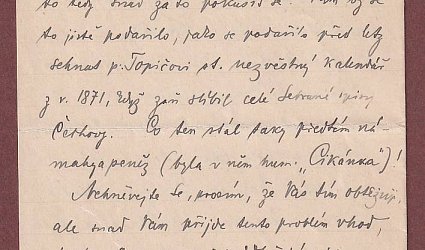 to tedy snad za to pokusit se.
to jistě podařilo, jako se podařilo před lety
sehnat p. Topičovi st. nezvěstný kalendář
z r. 1871, když zaň slíbil celé Sebrané spisy
Čechovy. Co ten stál taky předtím ná-
mahy a peněz (byla v něm hum. „Cikánka")!
Nehněvejte se, prosím, že Vás tím obtěžuji,
ale snad Vám přijde tento problém vhod,